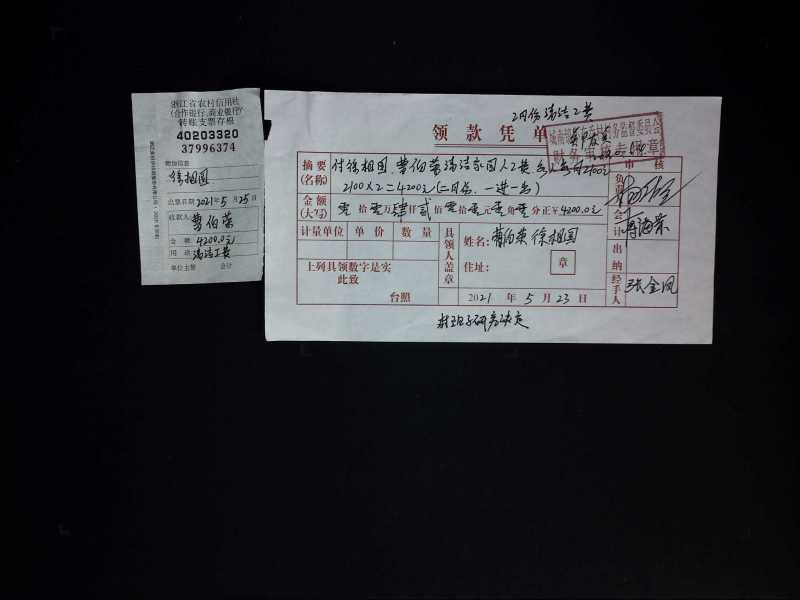 浙江省农村信用社
(合作银行、商业银行)
转账支票存根
40203320
37996374
附加信息
徐祖国
出票日期 2021年5月25日
收款人:
曹伯荣
金额: 4200.0元
用途: 清洁工资
单位主管 会计
2月份清洁工资
领款凭单
审核
摘要
(名称)
付徐祖国、曹伯荣清洁
2100×2=4200元(二月份,一进一出)
金额
(大写)
零拾零万肆仟贰佰零拾零元零角零分正¥4200.0元
计量单位 单价 数量
上列具领数字是实
此致
台照
具领人盖章
姓名: 曹伯荣 徐祖国
住址:
章
2021年5月23日
负责
会计
出纳
经手人
张金凤
村班子研究决定